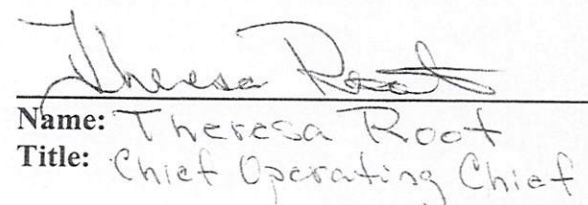 Theresa Root
Name: Theresa Root
Title: Chief Operating Chief